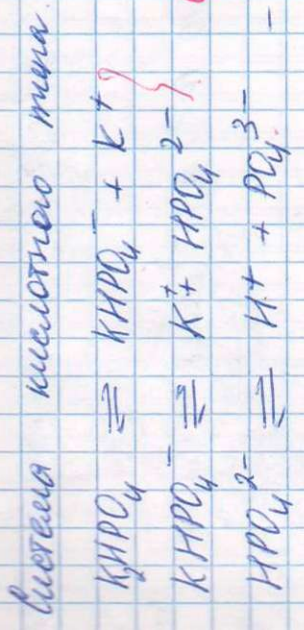 Система кислотного типа.
K₂HPO₄ ⇌ KHPO₄⁻ + K⁺
KHPO₄⁻ ⇌ K⁺ + HPO₄²⁻
HPO₄²⁻ ⇌ H⁺ + PO₄³⁻